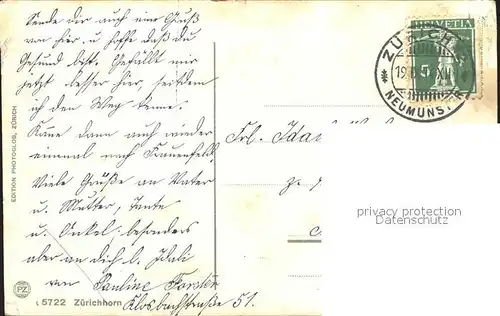 Sende dir auch eine Gruß
von hier u. hoffe daß du
Gesund bist. Gefällt mir
jetzt besser hier, seitdem
ich den Weg kenne.
Käme dann auch wieder
einmal nach Frauenfeld.
Viele Grüße an Vater
u. Mutter, Tante
u. Onkel. besonders
aber an dich l. Idali
von Pauline Forster
Klosbachstraße 51.
EDITION PHOTOGLOB, ZÜRICH
PZ
5722 Zürichhorn
HELVETIA
5
ZÜRICH
NEUMÜNSTER
Frl. Ida
z.
privacy protection
Datenschutz